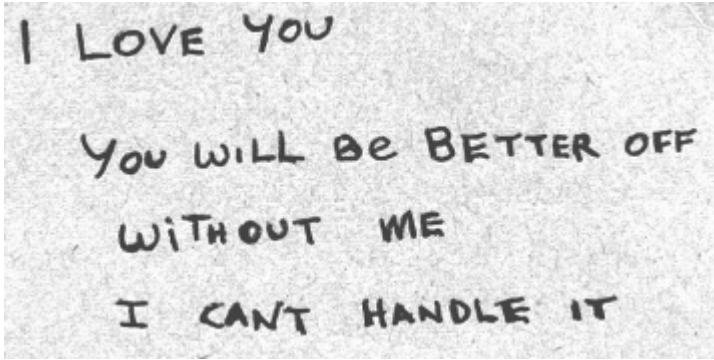 I LOVE YOU
YOU WILL Be BETTER OFF
WiTHOUT ME
I CANT HANDLE IT